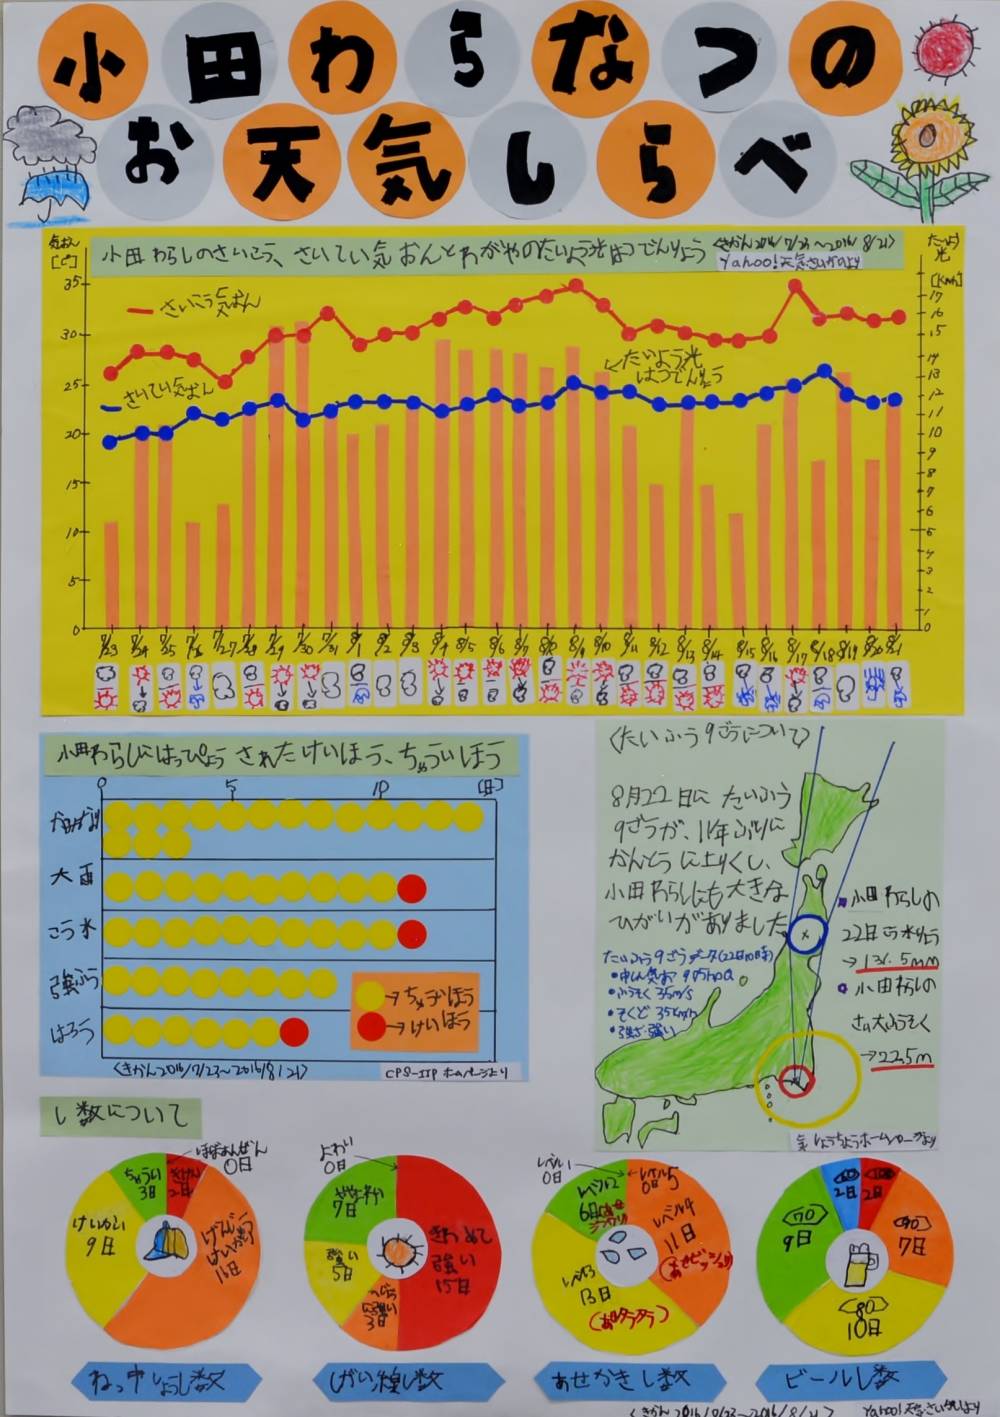 小田わらなつの
お天気しらべ
気おん
[℃]
小田わらしのさいこう、さいてい気おんとわがやのたいよう光はつでんりょう
<きかん2016/7/23〜2016/8/21>
Yahoo!天気さいがいより
たいよう
光
[Kwh]
さいこう気おん
さいてい気おん
たいよう光
はつでんりょう
35
30
25
20
15
10
5
0
17
16
15
14
13
12
11
10
9
8
7
6
5
4
3
2
1
0
7/23 7/24 7/25 7/26 7/27 7/28 7/29 7/30 7/31 8/1 8/2 8/3 8/4 8/5 8/6 8/7 8/8 8/9 8/10 8/11 8/12 8/13 8/14 8/15 8/16 8/17 8/18 8/19 8/20 8/21
小田わらしにはっぴょうされたけいほう、ちゅういほう
0 5 10 [日]
かみなり
大雨
こう水
強ふう
はろう
→ちゅういほう
→けいほう
<きかん2016/7/23〜2016/8/21>
ホームページより
<たいふう9ごうについて>
8月22日にたいふう
9ごうが、11年ぶりに
かんとうに上りくし、
小田わらしにも大きな
ひがいがありました
たいふう9ごうデータ(22日10時)
•中心気あつ 975hPa
•ふうそく 35m/s
•そくど 35km/h
•強さ 強い
小田わらしの
22日の水りょう
→131.5mm
小田わらしの
さい大ふうそく
→22.5m
気しょうちょうホームページより
し数について
ほぼあんぜん
0日
きけん
2日
ちゅうい
3日
けいかい
9日
げんじゅう
けいかい
16日
ねっ中しょうし数
よわい
0日
ややよわい
7日
強い
5日
ひじょうに強い
3日
きわめて
強い
15日
しがい線し数
レベル1
0日
レベル2
6日
レベル3
13日
レベル4
11日
レベル5
0日
あせかきし数
60
2日
100
2日
90
7日
80
10日
70
9日
ビールし数
<きかん2016/7/23〜2016/8/21>
Yahoo!天気さいがいより